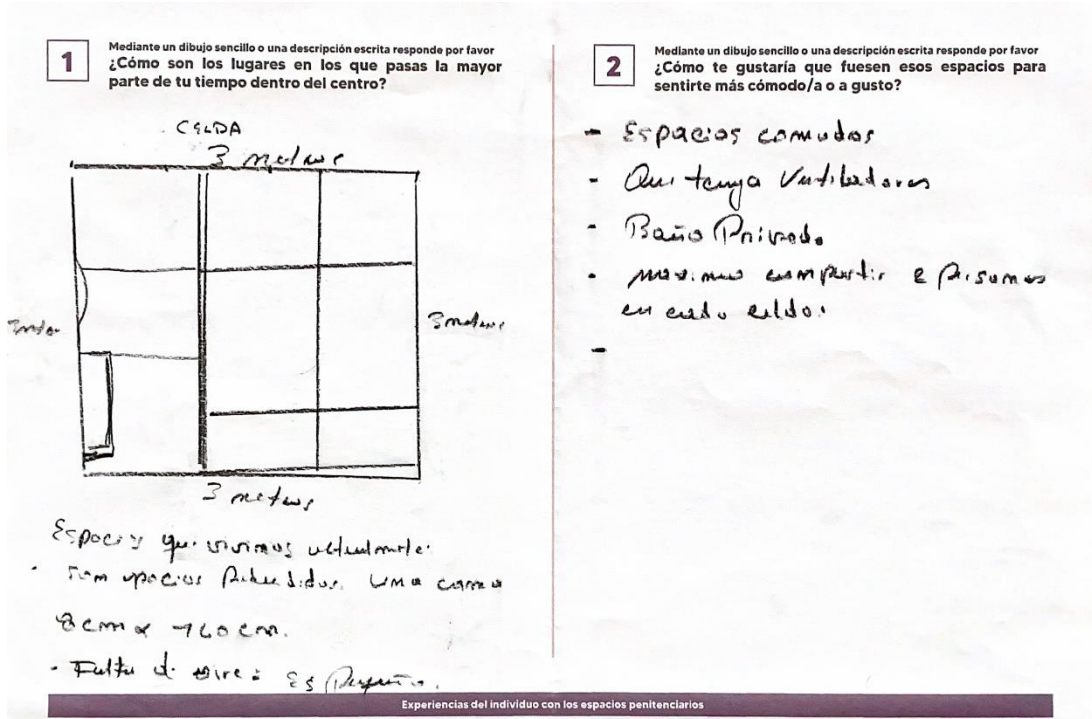 1
Mediante un dibujo sencillo o una descripción escrita responde por favor
¿Cómo son los lugares en los que pasas la mayor
parte de tu tiempo dentro del centro?
CELDA
3 metros
3 metros
3 metros
Espacios que vivimos actualmente:
· Son espacios Reducidos. Una cama
8cm x 160 cm.
· Falta de aire: Es Pequeño.
2
Mediante un dibujo sencillo o una descripción escrita responde por favor
¿Cómo te gustaría que fuesen esos espacios para
sentirte más cómodo/a o a gusto?
- Espacios comodos
- Que tenga Ventiladores
- Baño Privado
- maximo compartir 2 Personas
en cada celda.
-
Experiencias del individuo con los espacios penitenciarios